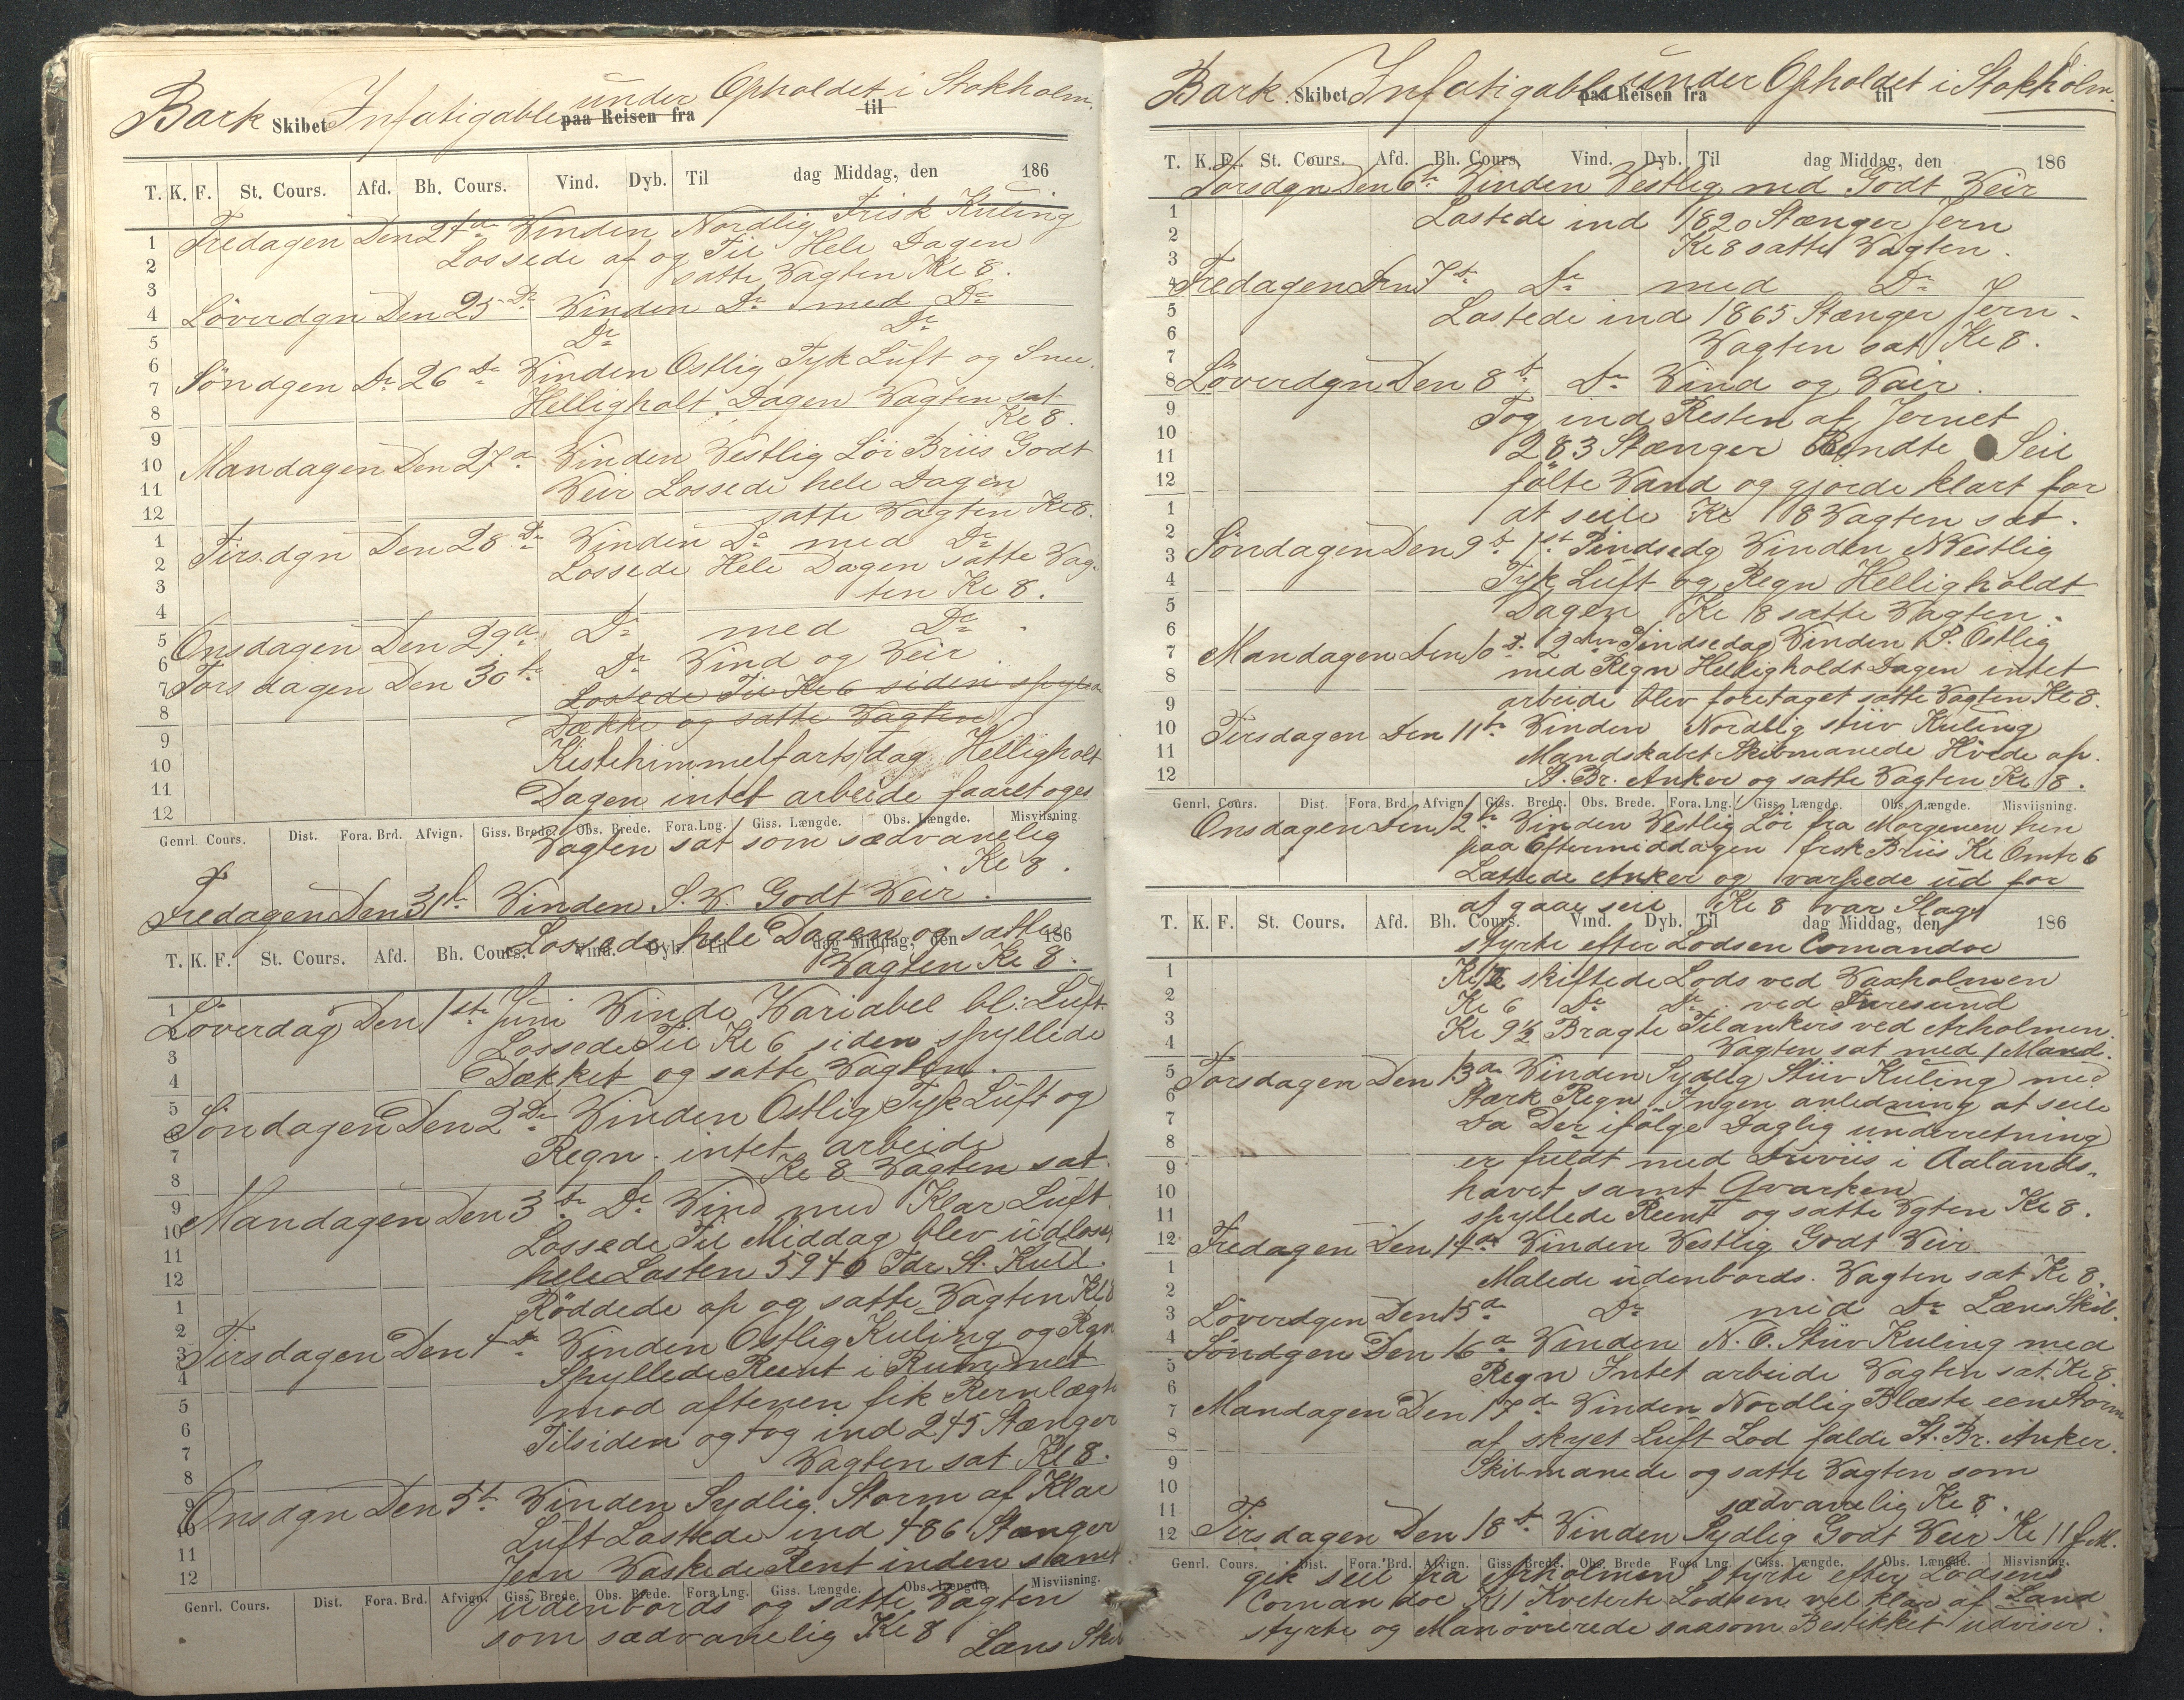 Bark Skibet Infatigable under Opholdet i Stokholm.
paa Reisen fra til
T. K. F. St. Cours. Afd. Bh. Cours. Vind. Dyb. Til dag Middag, den 186
Fredagen Den 24de Vinden Nordlig Frisk Kuling
Lossede af og Til Hele Dagen
satte Vagten Kl 8.
Löverdgn Den 25 De Vinden Do med Do
Do Do
Söndgen Dn 26 De Vinden Ostlig Tyk Luft og Snee.
Helligholt Dagen Vagten sat
Kl 8.
Mandagen Den 27 d Vinden Vestlig Löi Briis Godt
Veir Lossede hele Dagen
satte Vagten Kl 8.
Tirsdgn Den 28 De Vinden Do med Do
Lossede Hele Dagen satte Vag-
ten Kl 8.
Onsdagen Den 29 d Do med Do.
Torsdagen Den 30 te Do Vind og Veir.
Lossede Til Kl 6 siden spylede
Dække og satte Vagten
Kistehimmelfartsdag Helligholt
Dagen intet arbeide faaretoges
Genrl. Cours. Dist. Fora. Brd. Afvign. Giss. Brede. Obs. Brede. Fora. Lng. Giss. Længde. Obs. Længde. Misviisning.
Vagten sat som sædvanelig
Kl 8.
Fredagen Den 31te Vinden S. V. Godt Veir.
Lossede hele Dagen og satte
T. K. F. St. Cours. Afd. Bh. Cours. Vind. Dyb. Til dag Middag, den 186
Vagten Kl 8.
Löverdag Den 1ste Juni Vinde Variabel bl: Luft.
Lossede Til Kl 6 siden spyllede
Dækket og satte Vagten.
Söndagen Den 2 De Vinden Ostlig Tyk Luft og
Regn. intet arbeide
Kl 8 Vagten sat.
Mandagen Den 3 te Do Vind med Klar Luft.
Lossede Til Middag blev udlosset
hele Lasten 5940 Tdr St. Kull.
Röddede op og satte Vagten Kl 8
Tirsdagen Den 4 De Vinden Ostlig Kuling og Rgn
Spyllede Reent i Rummet
mod aftenen fik Jernlægt
Tilsiden og tog ind 245 Stænger
Vagten sat Kl 8.
Onsdgn Den 5t Vinden Sydlig Storm af Klar
Luft Lastede ind 486 Stænger
Jern Vaskede Rent inden samt
Genrl. Cours. Dist. Fora. Brd. Afvign. Giss. Brede. Obs. Brede. Fora. Lng. Giss. Længde. Obs. Længde. Misviisning.
udenbords og satte Vagten
som sædvanelig Kl 8 Læns Skib
Bark Skibet Infatigable under Opholdet i Stokholm.
paa Reisen fra til
T. K. F. St. Cours. Afd. Bh. Cours. Vind. Dyb. Til dag Middag, den 186
Torsdgn Den 6te Vinden Vestlig med Godt Veir
Lastede ind 1820 Stænger Jern
Kl 8 satte Vagten.
Fredagen Den 7te Do med Do
Lastede ind 1865 Stænger Jern.
Vagten sat Kl 8.
Löverdgn Den 8 t. Do Vind og Vair.
Tog ind Resten af Jernet
283 Stænger Rendte Seil
fölte Vand og gjorde klart for
at seile Kl 8 Vagten sat.
Söndagen Den 9 t. 1st Pindsedg Vinden NVestlig
Tyk Luft og Regn Helligholdt
Dagen Kl 8 satte Vagten.
Mandagen Den 10 t. 2den Pindsedag Vinden S. Ostlig
med Regn Helligholdt Dagen intet
arbeide blev foretaget satte Vagten Kl 8.
Tirsdagen Den 11te Vinden Nordlig stiv Kuling
Mandskabet Skibmanede Hivde op.
St. Br. Anker og satte Vagten Kl 8.
Genrl. Cours. Dist. Fora. Brd. Afvign. Giss. Brede. Obs. Brede. Fora. Lng. Giss. Længde. Obs. Længde. Misviisning.
Onsdagen Den 12te Vinden Vestlig Löi fra Morgenen hen
paa Eftermiddagen frsk Briis Kl Omtr 6
Lættede Anker og varpede ud for
at gaae seil Kl 8 var Slagt
T. K. F. St. Cours. Afd. Bh. Cours. Vind. Dyb. Til dag Middag, den 186
styrte efter Lodsen Comandoe
skiftede Lods ved Vaxholmen
Kl 6 Do Do ved Furesund
Kl 9½ Bragte Tilankers ved Arholmen.
Vagten sat med 1 Mand.
Torsdagen Den 13de Vinden Sydlig Stiiv Kuling med
Stærk Regn Ingen anledning at seile
Da Der ifölge Daglig underretning
er fuldt med Driviis i Aalands-
havet samt Qvarken
spyllede Reent og satte Vgten Kl 8.
Fredagen Den 14de Vinden Vestlig Godt Veir
Malede udenbords. Vagten sat Kl 8.
Löverdgen Den 15 d Do med Do Læns Skib.
Söndgen Den 16 d Vinden N. O. Stiiv Kuling med
Regn Intet arbeide Vagten sat Kl 8.
Mandagen Den 17 de Vinden Nordlig Blæste een Storm
af skyet Luft Lod falde St. Br. Anker.
Skibmanede og satte Vagten som
sædvanelig Kl 8.
Tirsdagen Den 18 t. Vinden Sydlig Godt Veir Kl 11 f.M.
Genrl. Cours. Dist. Fora. Brd. Afvign. Giss. Brede. Obs. Brede. Fora Lng. Giss. Længde. Obs. Længde. Misvisning.
gik seil fra Arholmen styrte efter Lodsens
Comandoe Kl 1 Kviterte Lodsen vel klar af Land
styrte og Manövrerede saasom Bestikket udviser.